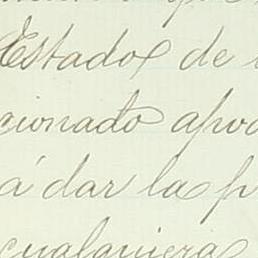 Estados de
cionado apod
á dar la p
cualquiera